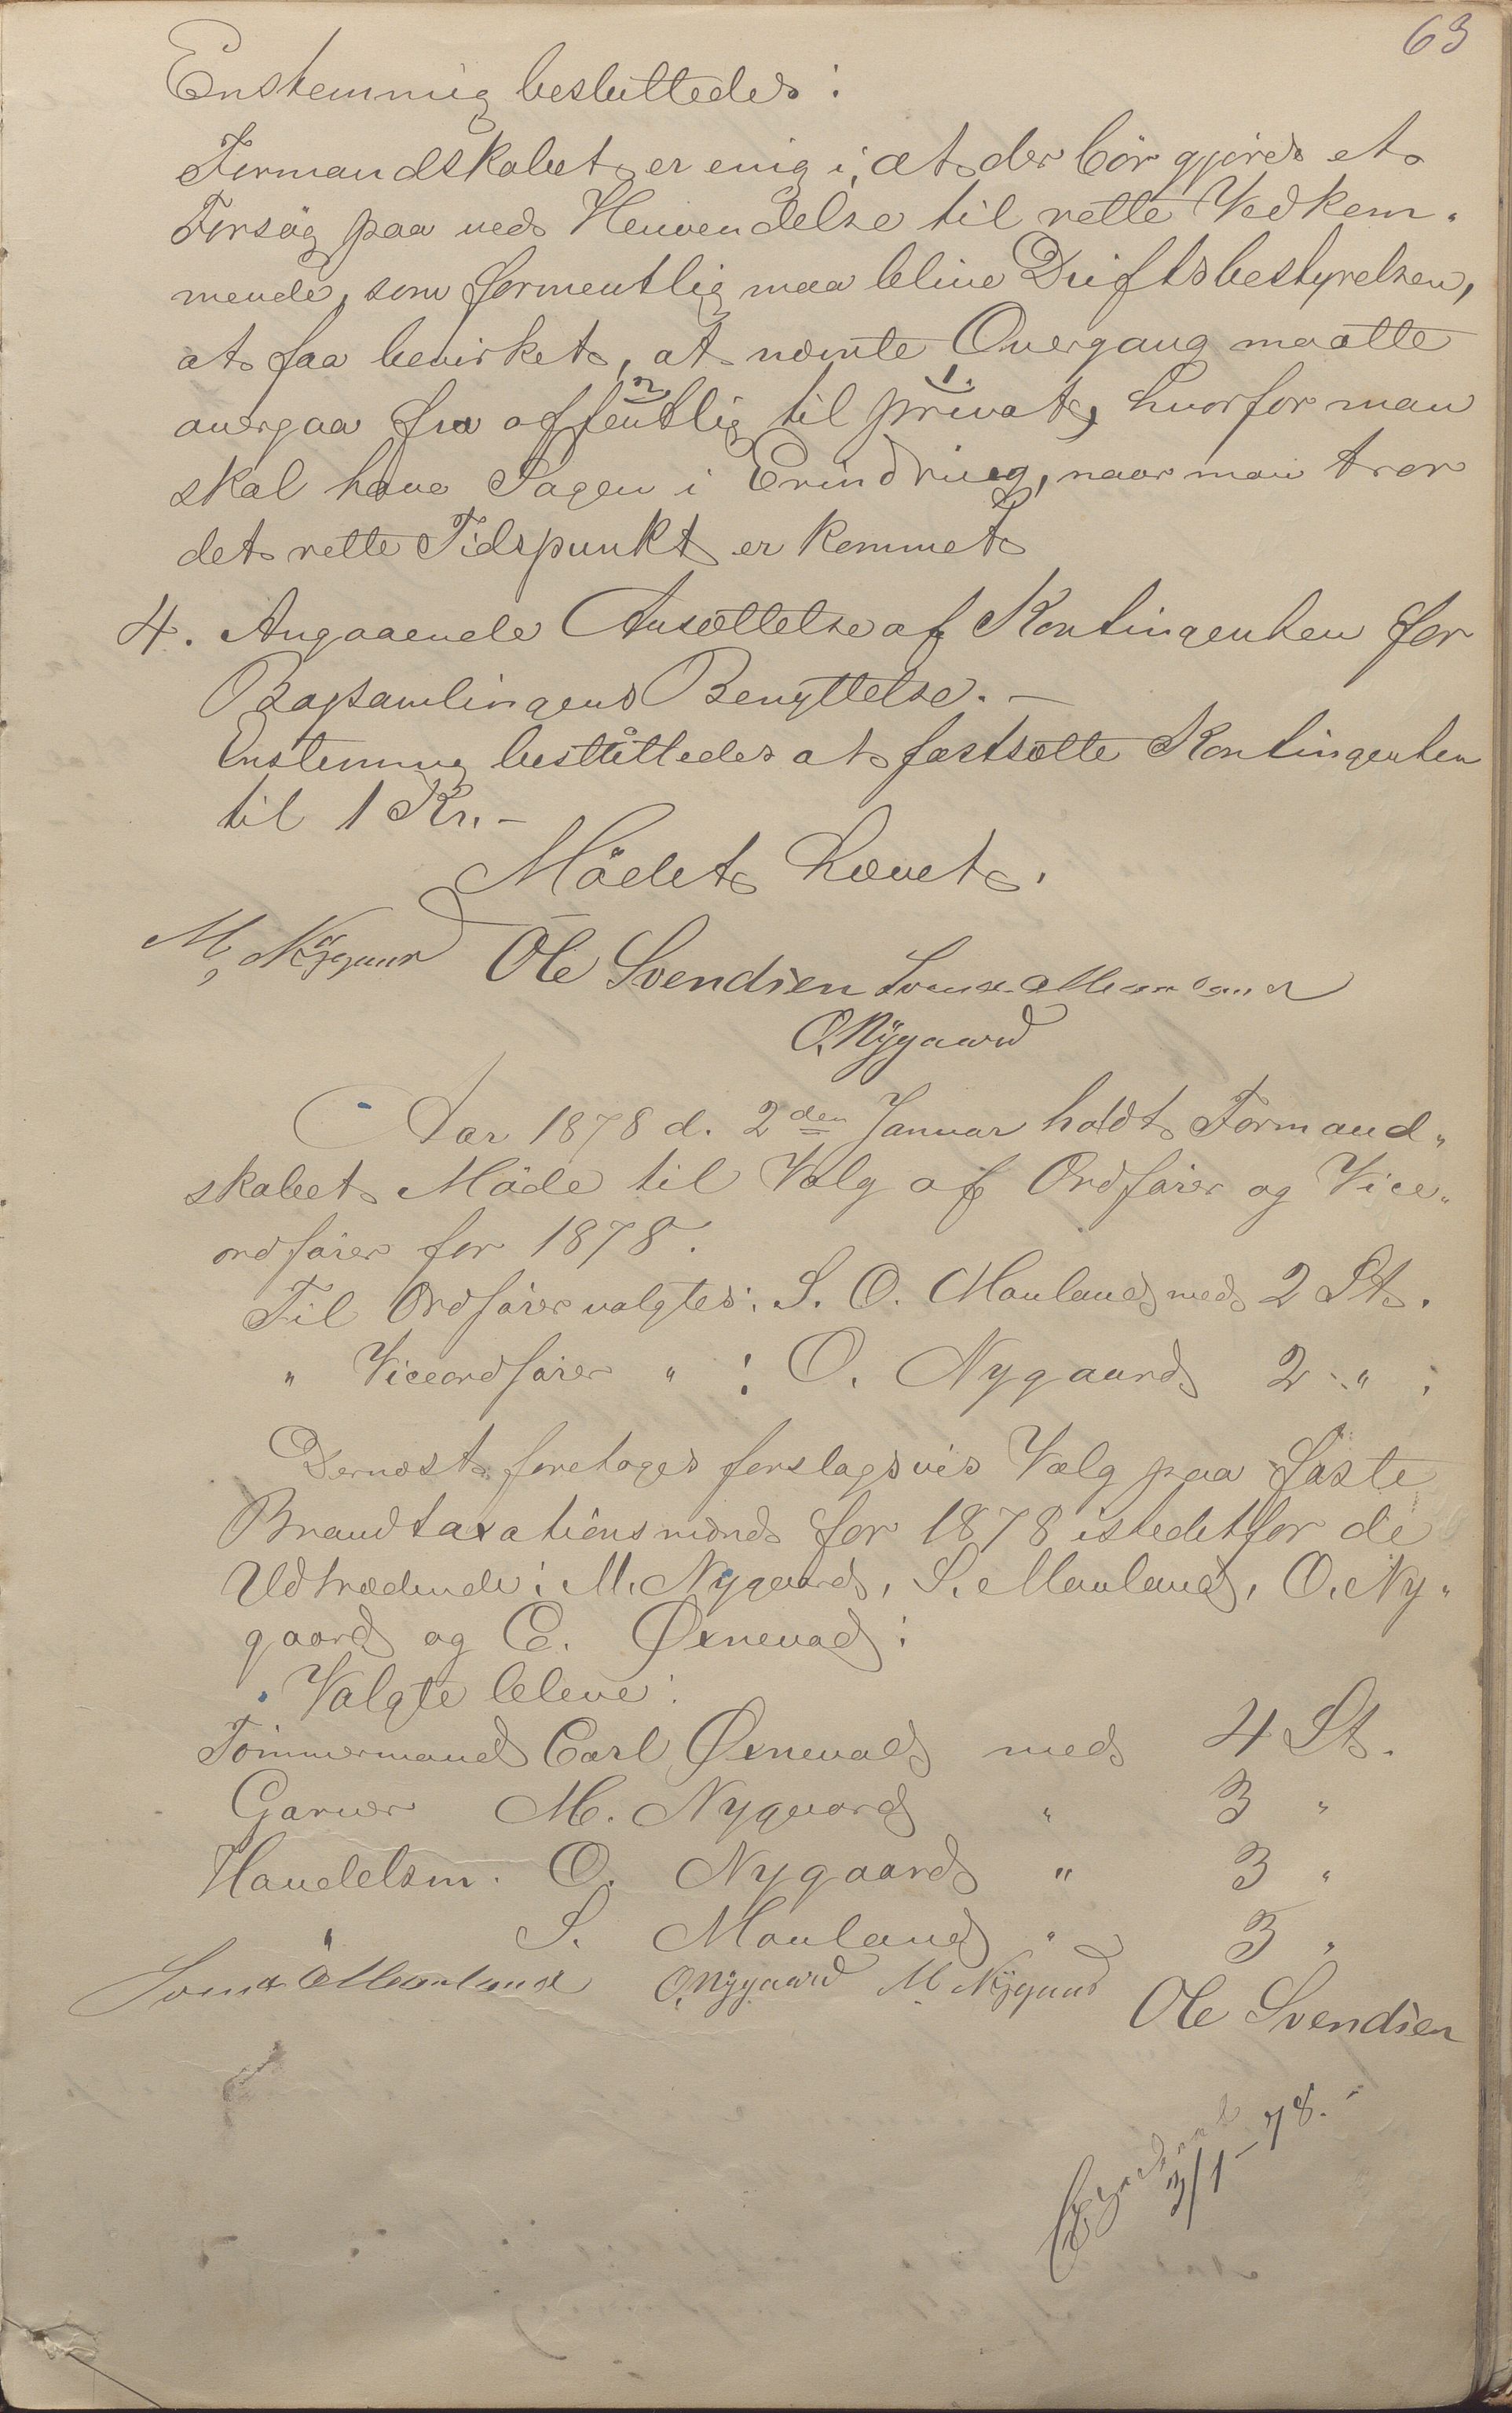 63
Enstemmig besluttedes:
Formandskabet er enig i, at der bör gjöres et
Forsög paa ved Henvendelse til rette Vedkom-
mende, som formentlig maa blive Driftsbestyrelsen,
at faa bevirket, at nævnte Overgang maatte
2 1.
overgaa fra offentlig til privat, hvorfor man
skal have Sagen i Erindring, naar man tror
det rette Tidspunkt er kommet
4. Angaaende Ansættelse af Kontingenten for
Bogsamlingens Benyttelse. —
Enstemmig besluttedes at fastsætte Kontingenten
til 1 Kr. –
Mödet hævet.
M Nygaard Ole Svendsen Svend O Mauland
O. Nÿgaard
Aar 1878 d. 2den Januar holdt Formand„
skabet Möde til Valg af Ordförer og Vice„
ordförer for 1878.
Til Ordförer valgtes: S. O. Mauland med 2 St.
" Viceordförer " : O. Nygaard 2 " .
Dernæst foretoges forslagsvis Valg paa faste
Brandtaxationsmænd for 1878 istedetfor de
Udtrædende: M. Nygaard, S. Mauland, O. Ny„
gaard og C. Øxnevad:
Valgte bleve:
Tömmermand Carl Øxnevad med 4 St.
Garver M. Nygaard " 3 "
Handelsm. O. Nygaard " 3 "
" S. Mauland " 3 "
Svend O Mauland O. Nÿgaard M Nÿgaard Ole Svendsen
3/1–78.